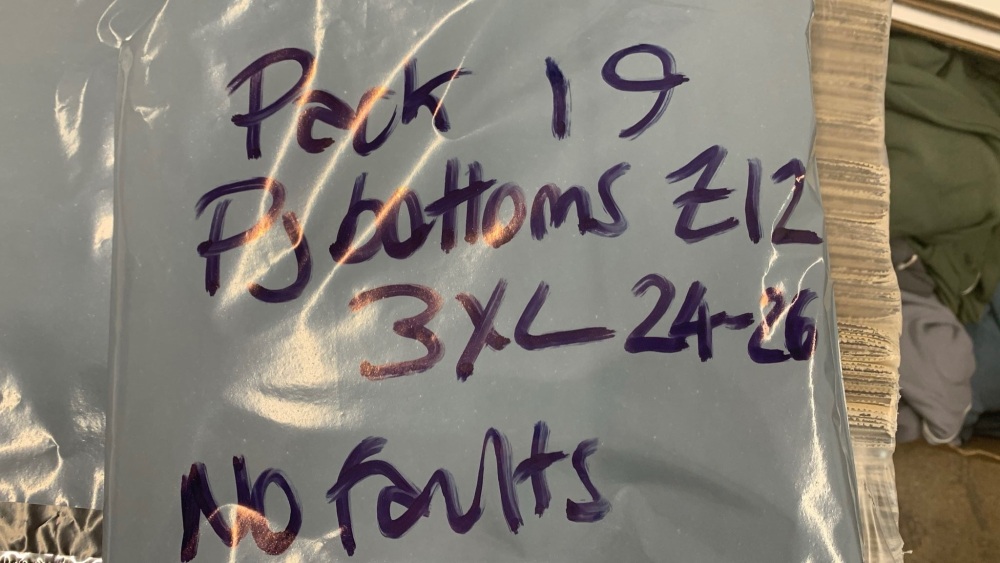 Pack 19
Pj bottoms £12
3XL 24-26
No faults